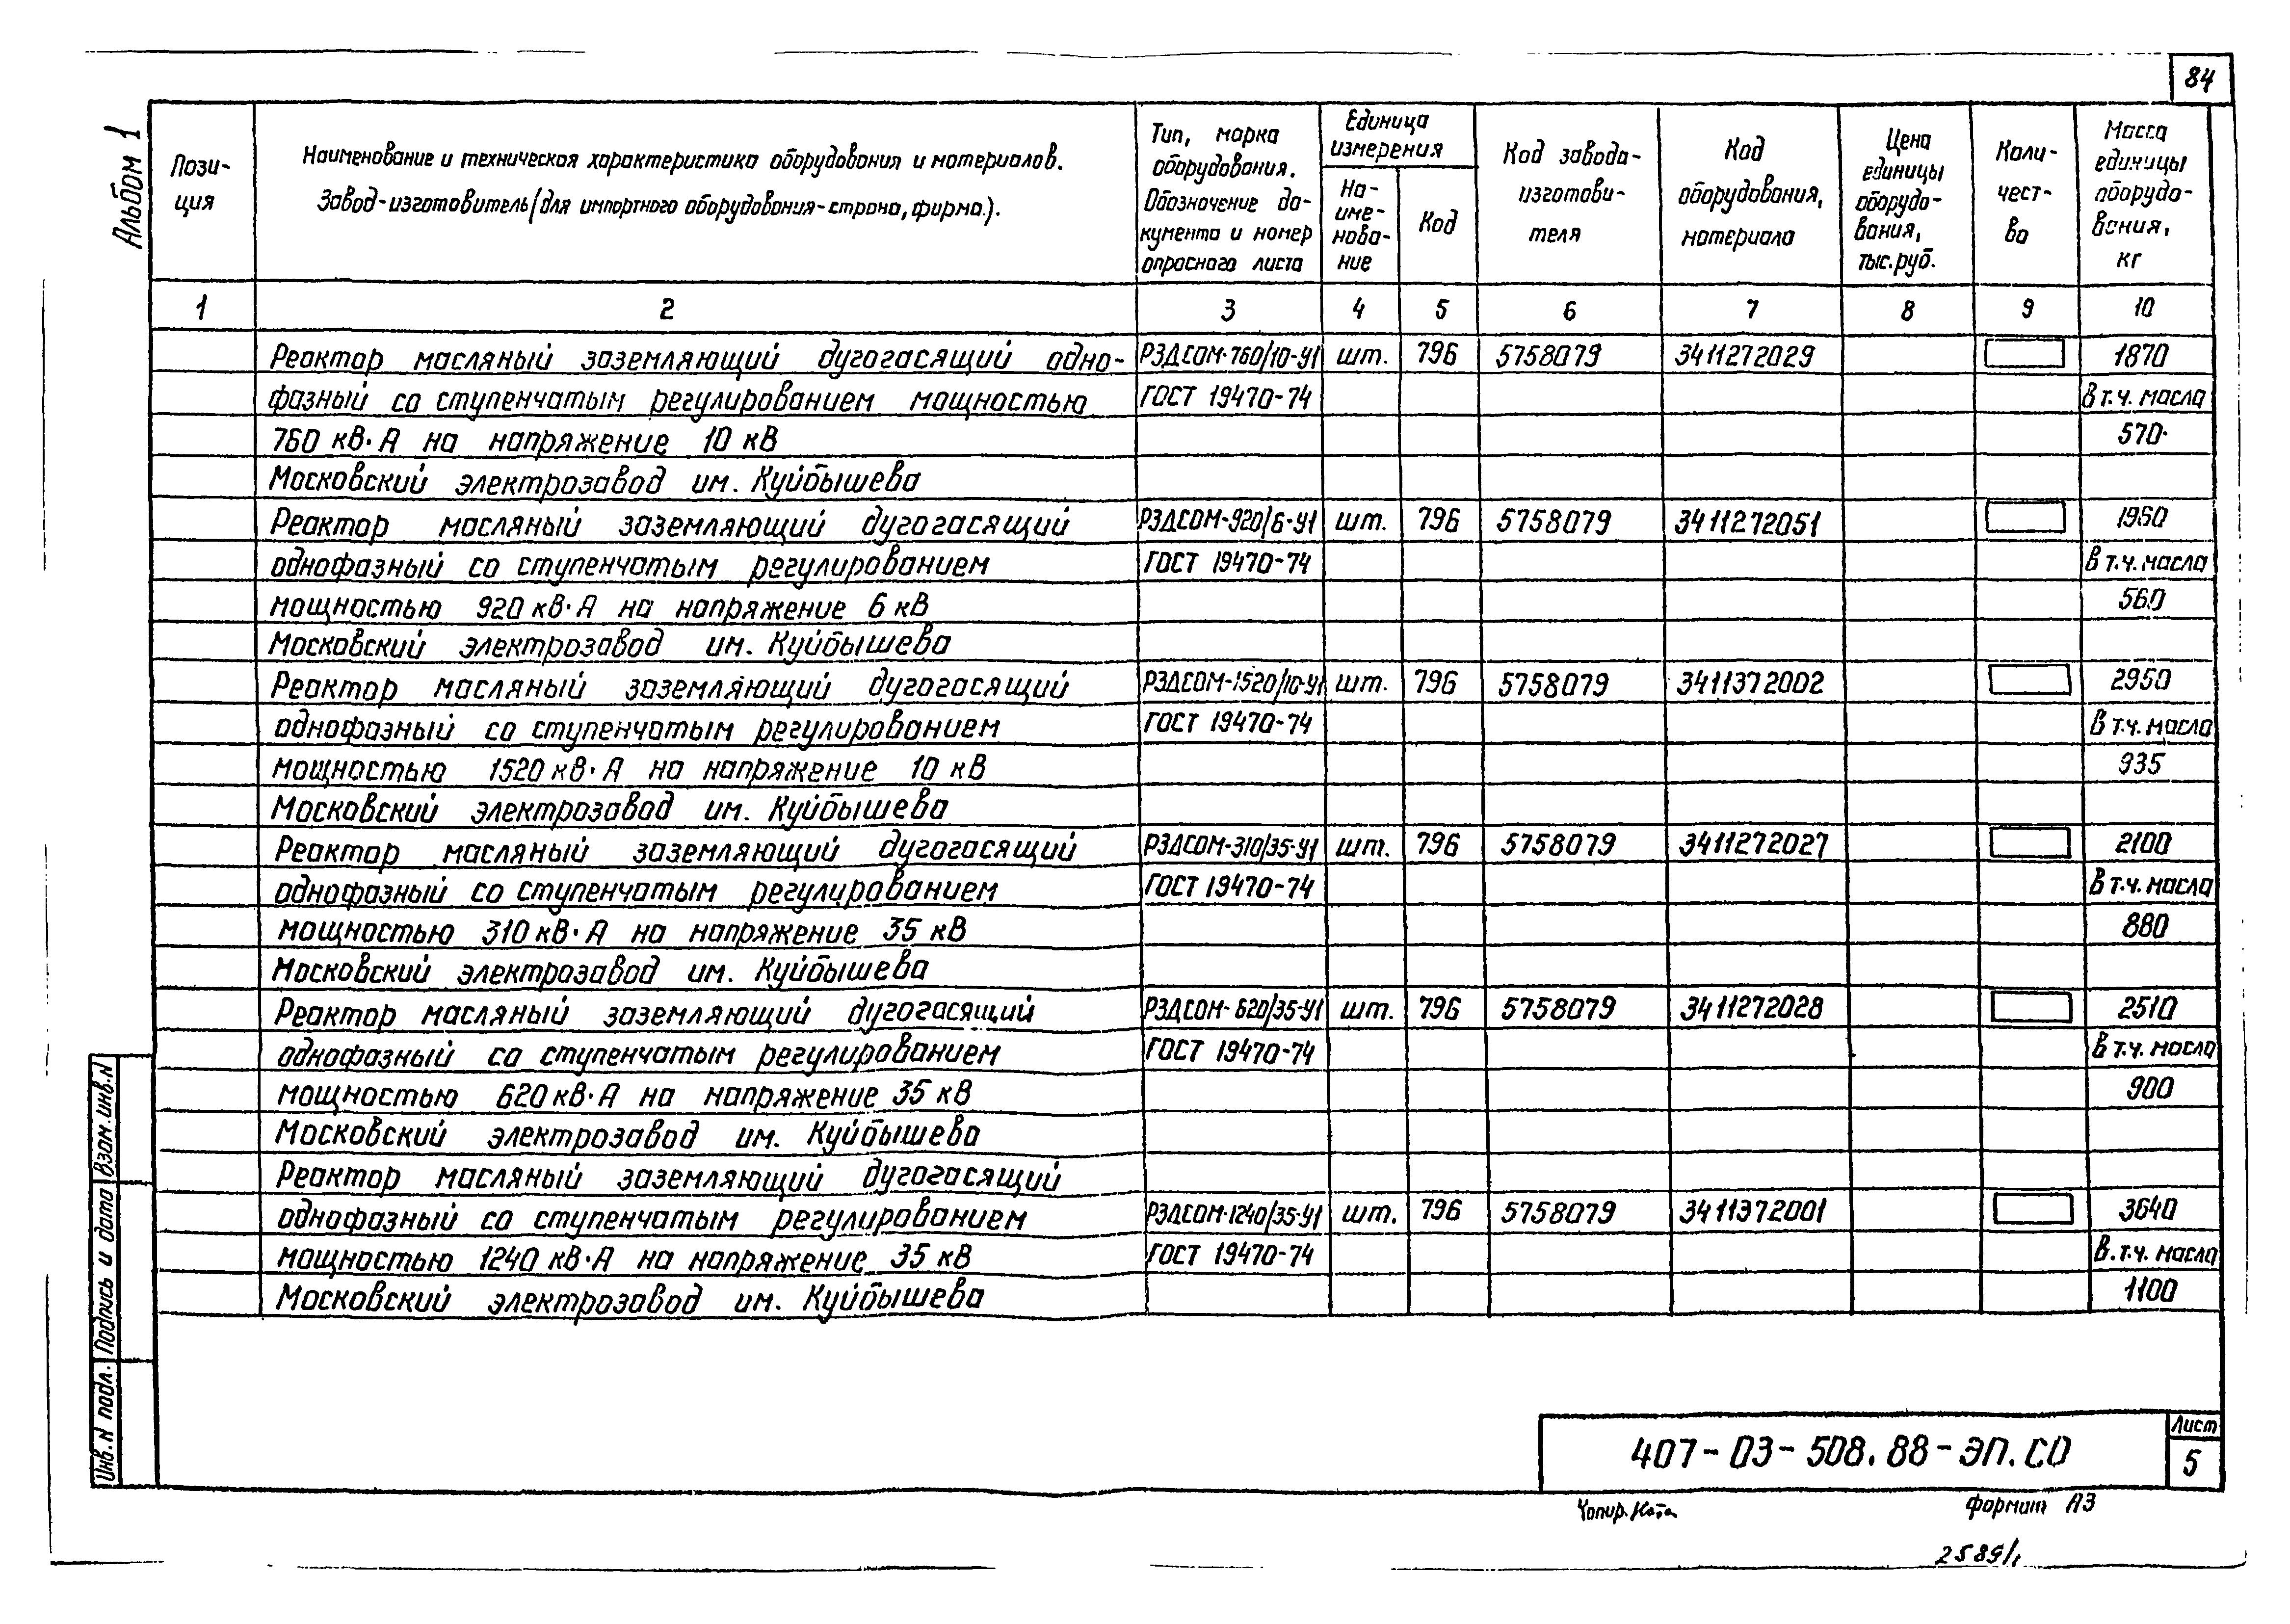 84
Альбом 1
Пози-
ция
Наименование и техническая характеристика оборудования и материалов.
Завод-изготовитель (для импортного оборудования-страна, фирма).
Тип, марка
оборудования.
Обозначение до-
кумента и номер
опросного листа
Единица
измерения
На-
име-
нова-
ние
Код
Код завода-
изготови-
теля
Код
оборудования,
материала
Цена
единицы
оборудо-
вания,
тыс.руб.
Коли-
чест-
во
Масса
единицы
оборудо-
вания,
кг
1 2 3 4 5 6 7 8 9 10
Реактор масляный заземляющий дугогасящий одно- РЗДСОМ-760/10-У1 шт. 796 5758079 3411272029 1870
фазный со ступенчатым регулированием мощностью ГОСТ 19470-74 в т.ч. масла
760 кВ·А на напряжение 10 кВ 570
Московский электрозавод им. Куйбышева
Реактор масляный заземляющий дугогасящий РЗДСОМ-920/6-У1 шт. 796 5758079 3411272051 1960
однофазный со ступенчатым регулированием ГОСТ 19470-74 в т.ч. масла
мощностью 920 кВ·А на напряжение 6 кВ 560
Московский электрозавод им. Куйбышева
Реактор масляный заземляющий дугогасящий РЗДСОМ-1520/10-У1 шт. 796 5758079 3411372002 2950
однофазный со ступенчатым регулированием ГОСТ 19470-74 в т.ч. масла
мощностью 1520 кВ·А на напряжение 10 кВ 935
Московский электрозавод им. Куйбышева
Реактор масляный заземляющий дугогасящий РЗДСОМ-310/35-У1 шт. 796 5758079 3411272027 2100
однофазный со ступенчатым регулированием ГОСТ 19470-74 в т.ч. масла
мощностью 310 кВ·А на напряжение 35 кВ 880
Московский электрозавод им. Куйбышева
Реактор масляный заземляющий дугогасящий РЗДСОМ-620/35-У1 шт. 796 5758079 3411272028 2510
однофазный со ступенчатым регулированием ГОСТ 19470-74 в т.ч. масла
мощностью 620 кВ·А на напряжение 35 кВ 900
Московский электрозавод им. Куйбышева
Реактор масляный заземляющий дугогасящий
однофазный со ступенчатым регулированием РЗДСОМ-1240/35-У1 шт. 796 5758079 3411372001 3640
мощностью 1240 кВ·А на напряжение 35 кВ ГОСТ 19470-74 в. т.ч. масла
Московский электрозавод им. Куйбышева 1100
Взам.инв.N
Подпись и дата
Инв.N подл.
407-03-508.88-ЭП.СО
Лист
5
Копир. формат А3
2589/1